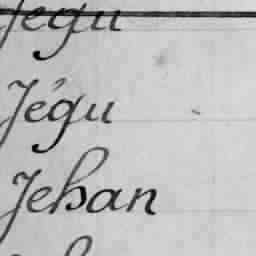 Jégu
Jégu
Jehan